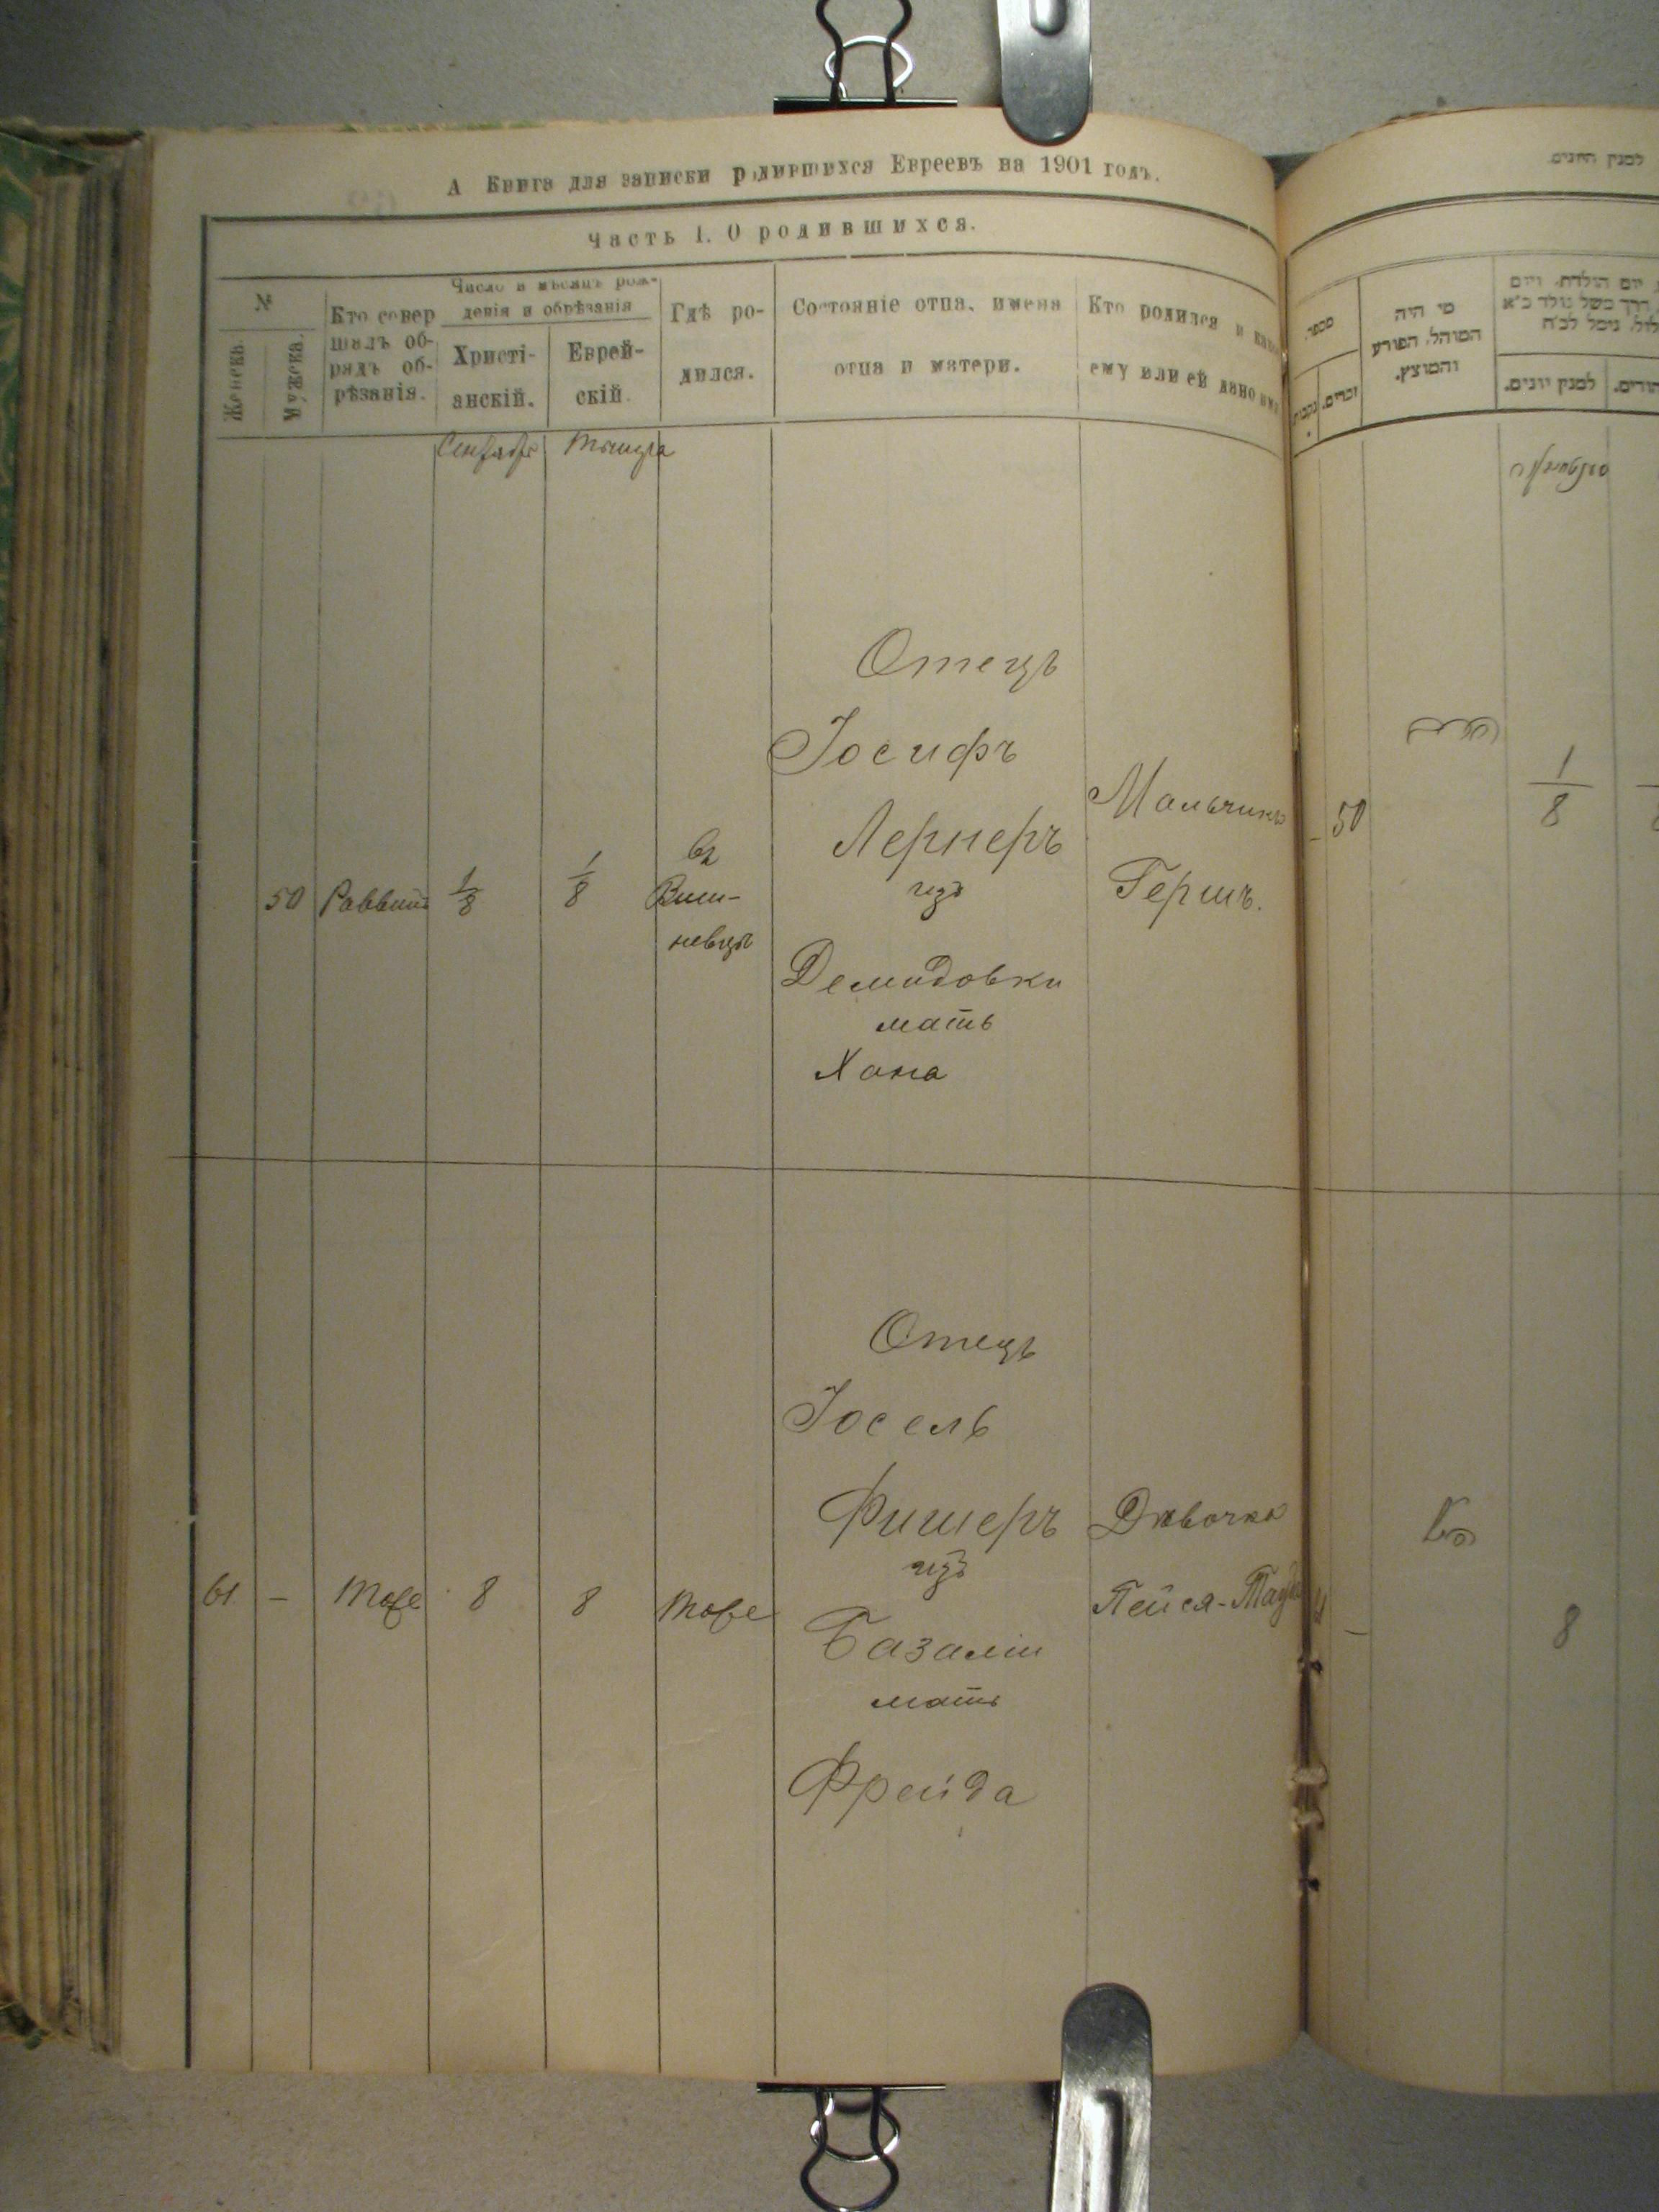 А Книга для записки родившихся Евреевъ на 1901 годъ.
Часть I. О родившихся.
№
Женска.
Мужска.
Кто совер
шалъ об-
рядъ об-
рѣзанія.
Число и мѣсяцъ рож-
денія и обрѣзанія
Христі-
анскій.
Еврей-
скій.
Гдѣ ро-
дился.
Состояніе отца, имена
отца и матери.
Кто родился и какое
ему или ей дано имя
Сентябрь
Тишра
50
Раввинъ
1/8
1/8
въ
Виш-
невцѣ
Отецъ
Іосифъ
Лернеръ
изъ
Демидовки
мать
Хана
Мальчикъ
Гершъ.
61
-
Тоже
8
8
Тоже
Отецъ
Іосель
Фишеръ
изъ
Базаліи
мать
Фрейда
Дѣвочка
Пейся-
למנין היונים.
מספר
נקבות
זכרים.
מי היה
המוהל, הפורע
והמוצץ.
יום הולדת, ויום
דרך משל נולד כ״א
אלול, נימל לכ״ח
למנין יונים.
50
1/8
8